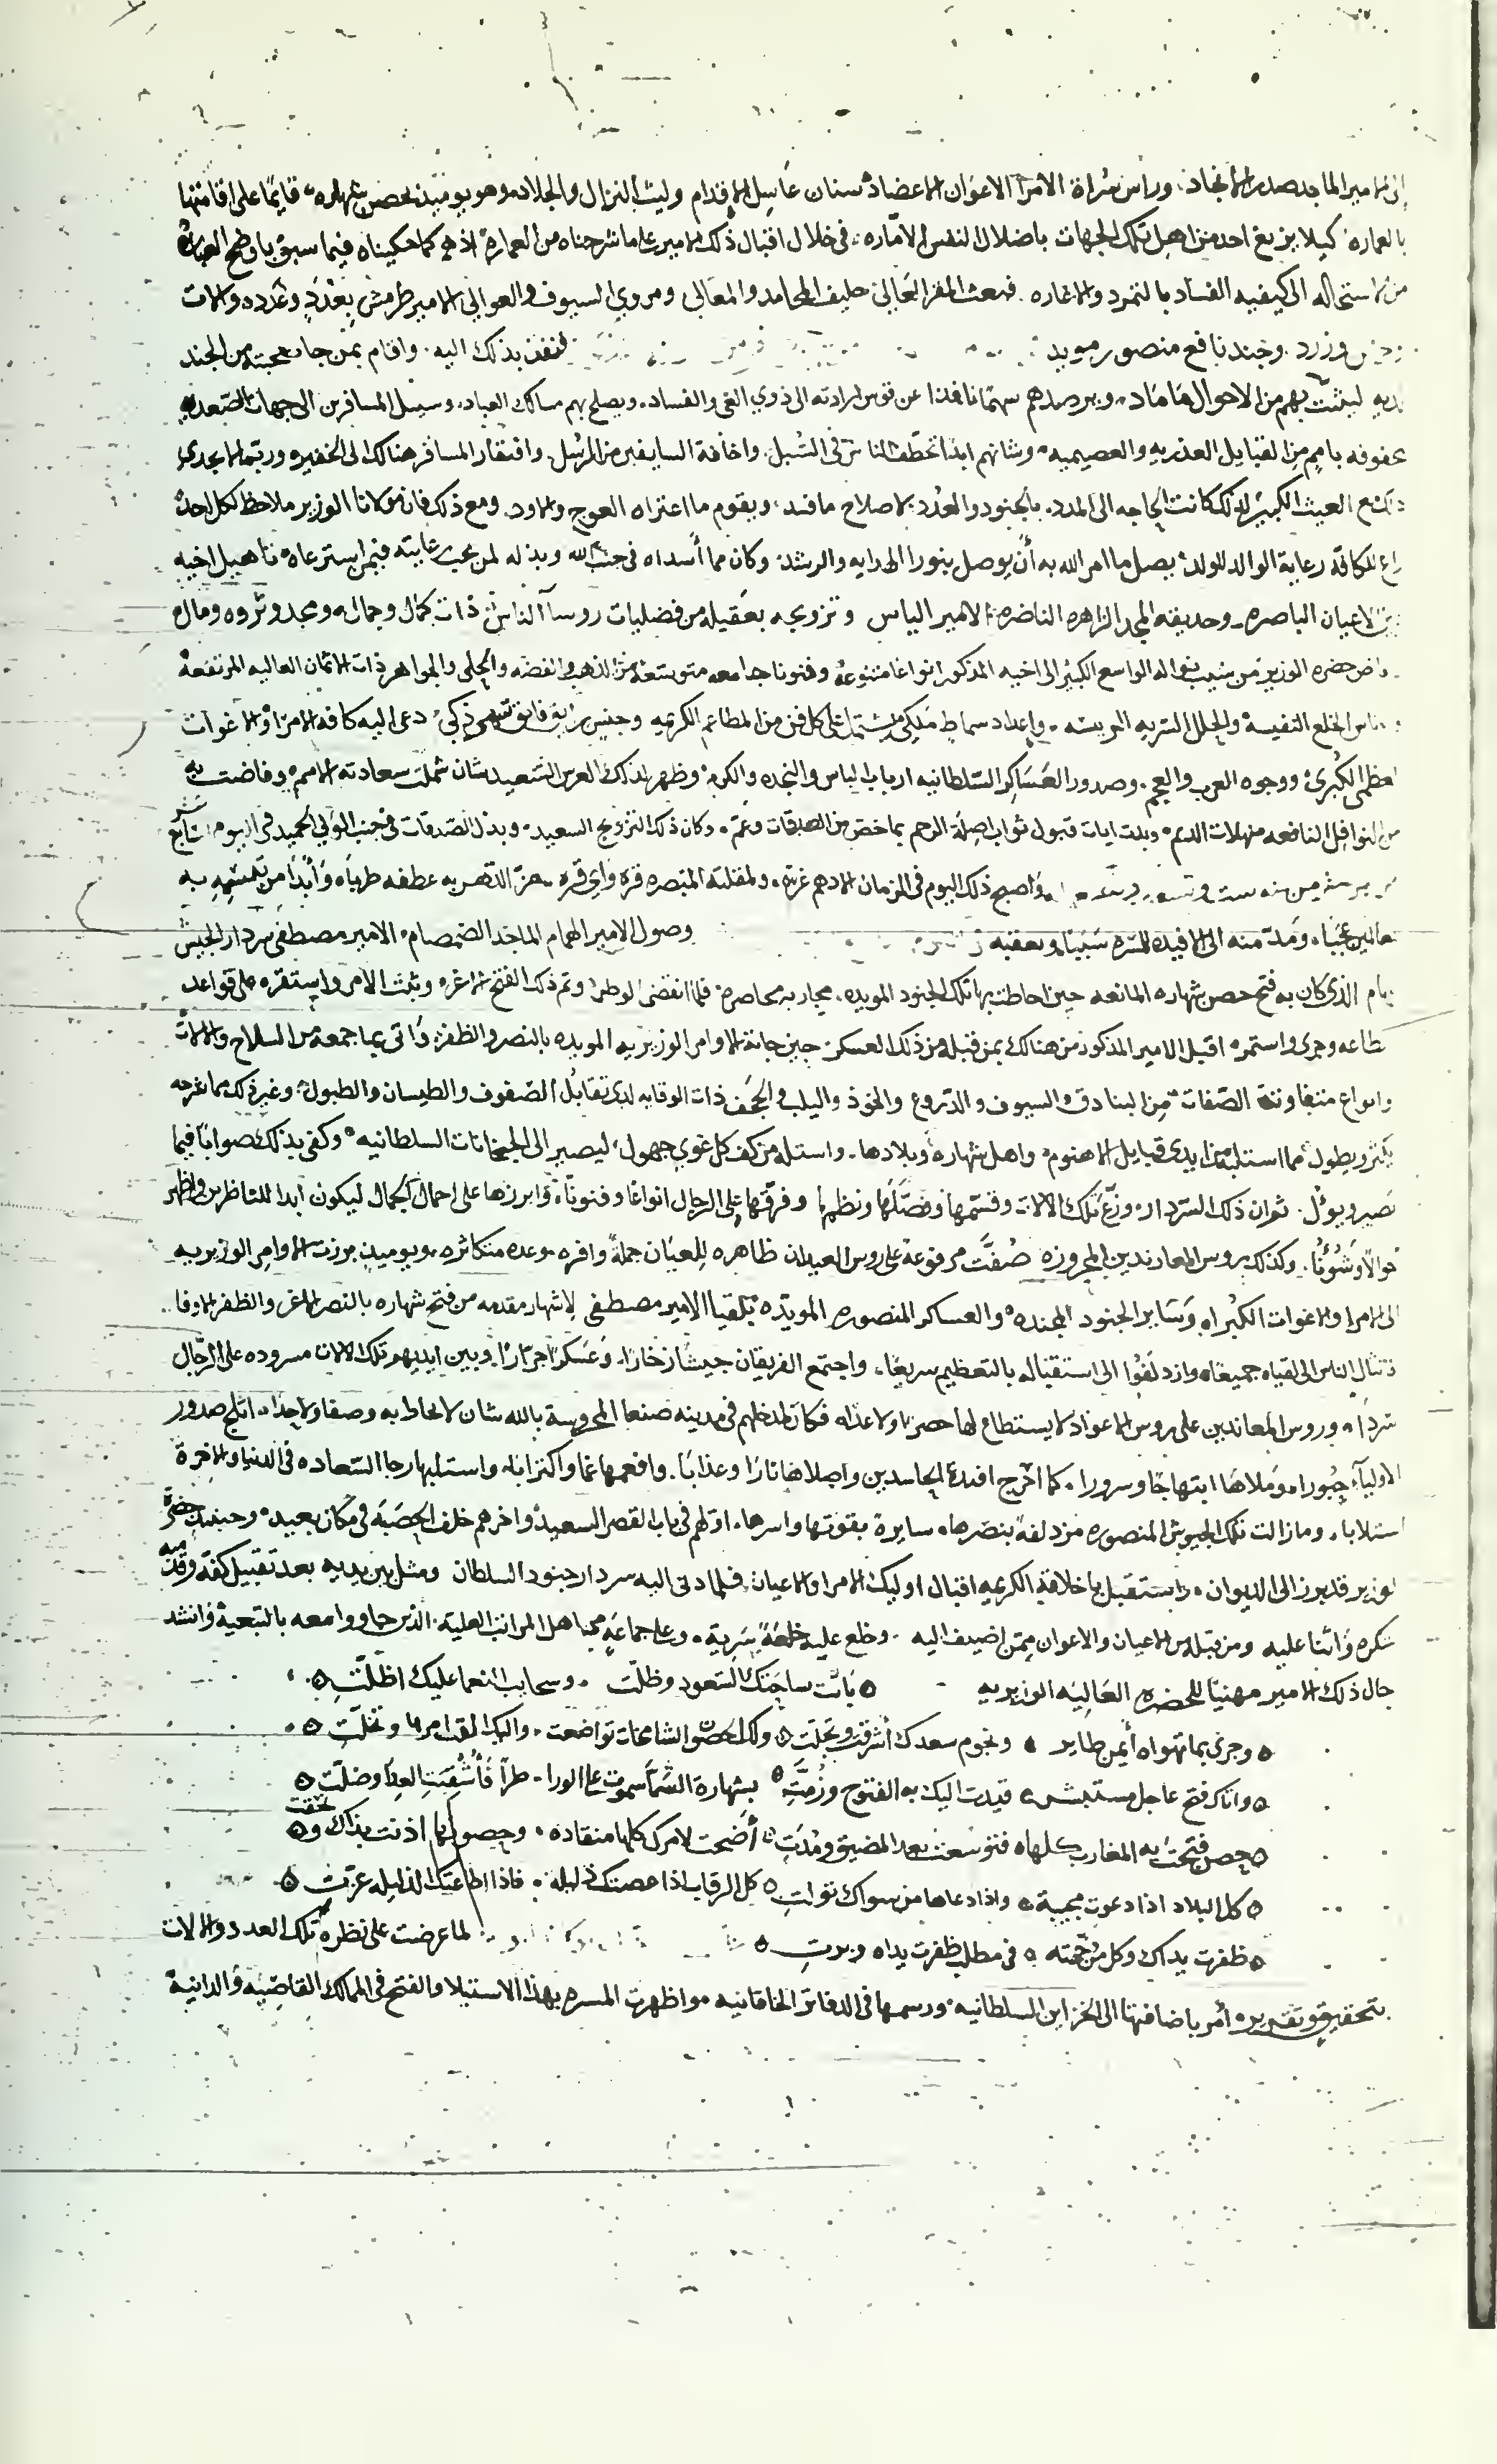 إلى الامير الماجد صدر الانجاد، وراس سراة الامرآ الاعوان الاعضاد سنان عاسل الاقدام وليث النزال والجلاد وهو يوميذ بحصن شهاره قايمًا على اقامتها
بالعماره كيلا يزيغ احد من اهل تلك الجهات باضلال النفس الامّاره، في خلال اقبال ذلك الامير على ما شرحناه من العماره اذ هى كما حكيناه فيما سبق باوضح العباره
من الاستحاله الى كيفيه الفساد بالتمرد والاغاره. فبعث المقر العالي حليف المحامد والمعالي ومروي السيوف والعوالي الامير طرمش بعُدَدٍ وعُدده والات
وزرد. وجند نافع منصور مويد لتنفذ بذلك اليه. واقام بمن جاء صحبته من الجند
لديه ليثبت بهم من الاحوال ما ماد، ويرصدهم سهمًا نافذا عن قوس ارادته الى ذوي الغي والفساد، ويصلح بهم مسالك العباد، وسبيل المسافرين الى جهات الصعديه
محفوفه بامم من القبايل العذريه والعصيميه، وشانهم ابدًا تخطف الناس في السُبل، واخافة السايفين من الرسُل، وافتقار المسافر هنالك الى الخفيره وربّما لا يجدى
ذلك مع العيث الكبير لذلك كانت الحاجه الى المدد، بالجنود والعُدد لاصلاح ما فسد، ويقوم ما اعتراه العوج والاود. ومع ذلك فان مولانا الوزير ملاحظ لكل احد
راع للكافّه رعاية الوالد للولد، يصل ما امر الله به أن يوصل بنور الهدايه والرشد، وكان مما أسداه في جنب الله وبذله لمن يجب رعايته فيمن استرعاه تاهيل اخيه
عين الاعيان الباصره وحديقه المجد الزاهره الناضره الامير الياس وتزويجه بعقيله من فضليات روسآ الناس ذات كمال وجمال ومجد وثروه ومال
وافاض حضره الوزير من سيب نواله الواسع الكبير الى اخيه المذكور انواعًا متنوعهً وفنونا جامعه متوسعة من الذهب والفضه والحلي والجواهر ذات الاثمان العاليه المرتفعة
الخلع النفيسة والحلل السريه واعداد سماطٍ ملكي مشتمل على كل فن من المطاعم الكريمه وجنس رايق فايق شهي زكي، دعى اليه كافه الامرا والاغوات
العظمى الكبرى، ووجوه العرب والعجم، وصدور العساكر السلطانيه ارباب الباس والنجده والكرم وظهر لذلك العرس السعيد شان شملت سعادته الامم، وفاضت به
من النوافل النافعه منهلات الديم، وبدت ايات قبول ثواب صلة الرحم بما خصّ من الصدقات وعمّ، وكان ذلك التزويج السعيد، وبذل الصدقات في جنب الولي الحميد في اليوم التاسع عشر
واصبح ذلك اليوم في الزمان الادهم غرّه، ولمقلته المتبصره قرة واي قره هزّ الدهر به عطفه طربًا، وأبدأ من تبسّمه به
للعالمين عجبًا، ومدّ منه الى الافيده للمسرّه سَبَبًا وبعقبه وصول الامير الهمام الماجد الضمصام الامير مصطفى سردار الجيش
الذي كان به فتح حصن شهاره المانعه حين احاطت بها تلك الجنود المويده، محاربه محاصره فلما انقضى الوطر، وتم ذلك الفتح الاغر، وثبت الامر واستقره على قواعد
الطاعه وجرى واستمره اقبل الامير المذكور من هنالك بمن قبله من ذلك العسكر، حين جاءته الاوامر الوزيريه المويده بالنصر والظفر، واتى بما جمعه من السلاح والالات
وانواع متفاوتة الصّفات من البنادق والسيوف والدّروع والخوذ واليلب والجحف ذات الوقايه لدى تقابُل الصّفوف والطيسان والطبول، وغير ذلك مما شرحه
يكثر ويطول، مما استلبه من ايدى قبايل الاهنوم واهل شهاره وبلادها، واستله من كف كل غوي جهول، ليصير الى الجبخانات السلطانيه، وكفى بذلك صوابًا فيما
تصير ويؤل. ثم ان ذلك السّردار، وزّع تلك الالات وقسّمها وفصّلها ونظمها وفرّقها على الرجال انواعًا وفنونًا، وابرزها على احمال الجمال ليكون ابدا للناظرين واظهر
احوالًا وشؤنًا، وكذلك روس المعاندين المجزوزه صُفّت مرفوعة على روس العيدان ظاهره للعيان جملة وافره وعده متكاثره ويوميذٍ برزت الاوامر الوزيريه
الى الامرا والاغوات الكُبراء وساير الجنود المجنده والعساكر المنصوره المويّده بلقيا الامير مصطفى لاشهار مقدمه من فتح شهاره بالنصر الاغر والظفر الاوفا
فانثال الناس الى لقياه جميعًا وازدلفوا الى استقباله بالتعظيم سريعًا، واجتمع الفريقان جيشًا زخارًا، وعَسكرًا جرّارًا وبين ايديهم تلك الالات مسروده على الرّجال
سردًا، وروس المعاندين على روس الاعواد لا يستطاع لها حصرًا ولا عدًا، فكان لمدخلهم في مدينه صنعا المحروسة بالله شان لا يحاط به وصفا ولا حدًا، اثلج صدور
الاوليآء حُبورا، وملاها ابتهاجًا وسرورا، كما أحرج افيدة الحاسدين واصلاها نارًا وعذابًا. وافعمها غما واكترابا، واستلبها رجا السّعاده في الدنيا والاخرة
استلابا، وما زالت تلك الجيوش المنصوره مزدلفةً بنصرها، سايرة بقوتها واسرها، اوّلهم في باب القصر السعيد، واخرهم خلف الحصبَة في مكان بعيد، وحينيذٍ حضرة
الوزير قد برز الى الديوان، واستقبل باخلاقه الكريمه اقبال اوليك الامرا والاعيان، فلما دنى اليه سردار جنود السلطان ومثل بين يديه بعد تقبيل كفّه وقدميه
شكره واثنا عليه ومن قبله من الاعيان والاعوان ممن اضيف اليه وخلع عليه خلعةً سَرِية، وعلى جماعةٍ من اهل المراتب العلية الذين جاووا معه بالتبعية وانشد
حال ذلك الامير مهنيًا للحضره العَاليه الوزيريه ٥ باتت ساحتك السّعود وظلّت وسحايب النعما عليك اظلّت ٥
٥ وجرى بما تهواه أيمن طاير ٥ ونجوم سعدك أشرقت وتجلّت ٥ ولك الحصون الشامخات تواضعت واليك القت امرها وتخلّت ٥
٥ واتاك فتح عاجل مستبشر ٥ قيدت اليك به الفتوح وزُمّتِ ٥ بشهارة الشمّا سموت على الورا طرًا فأشقيت العدا وضلّت ٥
٥ حصن فتحت به المغارب كلها ٥ فتوسعت بعد المضيق ومُدّتِ ٥ أضحت لامرك كلها منقاده وحصولها اذنت بذاك وحقت ٥
٥ كل البلاد اذا دعوت مجيبة ٥ واذا دعاها من سواك تولت ٥ كل الرقاب اذا عصتك ذليله فاذا اطاعتك الذليله عزّت ٥
٥ ظفرت يداك وكل من ٥ في مطلب ظفرت يداه وبرت ٥ لما عرضت على نظره تلك العدد والالات
بتحقيق وتقريره أمر باضافتها الى الخزاين السلطانيه ورسمها في الدفاتر الخاقانيه واظهرت المسره بهذا الاستيلا والفتح في الممالك القاصيه والدانية